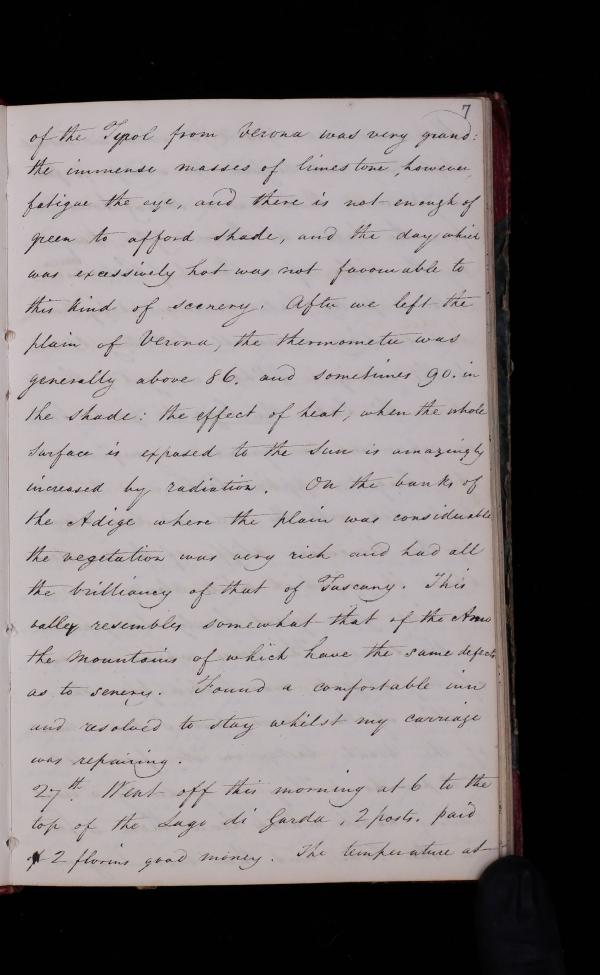 7
of the Tyrol from Verona was very grand:
the immense masses of limestone, however,
fatigue the eye, and there is not enough of
green to afford shade, and the day which
was excessively hot was not favourable to
this kind of scenery. After we left the
plain of Verona, the thermometer was
generally above 86. and sometimes 90. in
the shade: the effect of heat, when the whole
surface is exposed to the sun is amazingly
increased by radiation. On the banks of
the Adige where the plain was considerable
the vegetation was very rich and had all
the brilliancy of that of Tuscany. This
valley resembles somewhat that of the Arno
the mountains of which have the same defects
as to senery. Found a comfortable inn
and resolved to stay whilst my carriage
was repairing.
27th. Went off this morning at 6 to the
top of the Lago di Garda, 2 posts. paid
2 florins good money. The temperature at